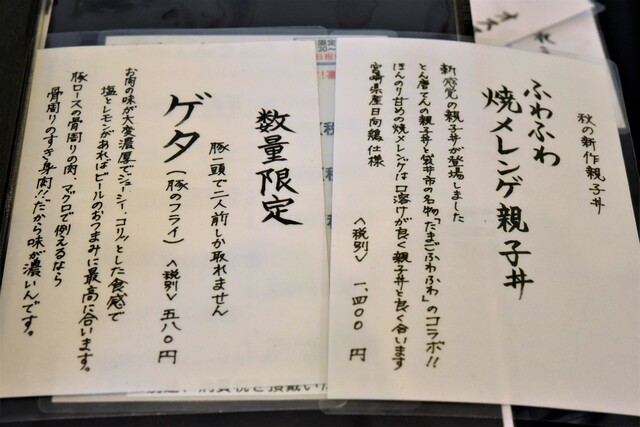 秋の新作親子丼
ふわふわ
焼メレンゲ親子丼
新感覚の親子丼が登場しました
とん唐てんの親子丼と袋井市の名物「たまごふわふわ」のコラボ!!
ほんのり甘めの焼メレンゲは口溶けが良く親子丼と良く合います
宮崎県産日向鶏仕様
<税別> 一、四〇〇円
数量限定
豚一頭で二人前しか取れません
ゲタ(豚のフライ) <税別> 五八〇円
お肉の味が大変濃厚でジューシー、コリッとした食感で
塩とレモンがあればビールのおつまみに最高に合います。
豚ロースの骨周りの肉、マグロで例えるなら
骨周りのすき身肉!!だから味が濃いんです。